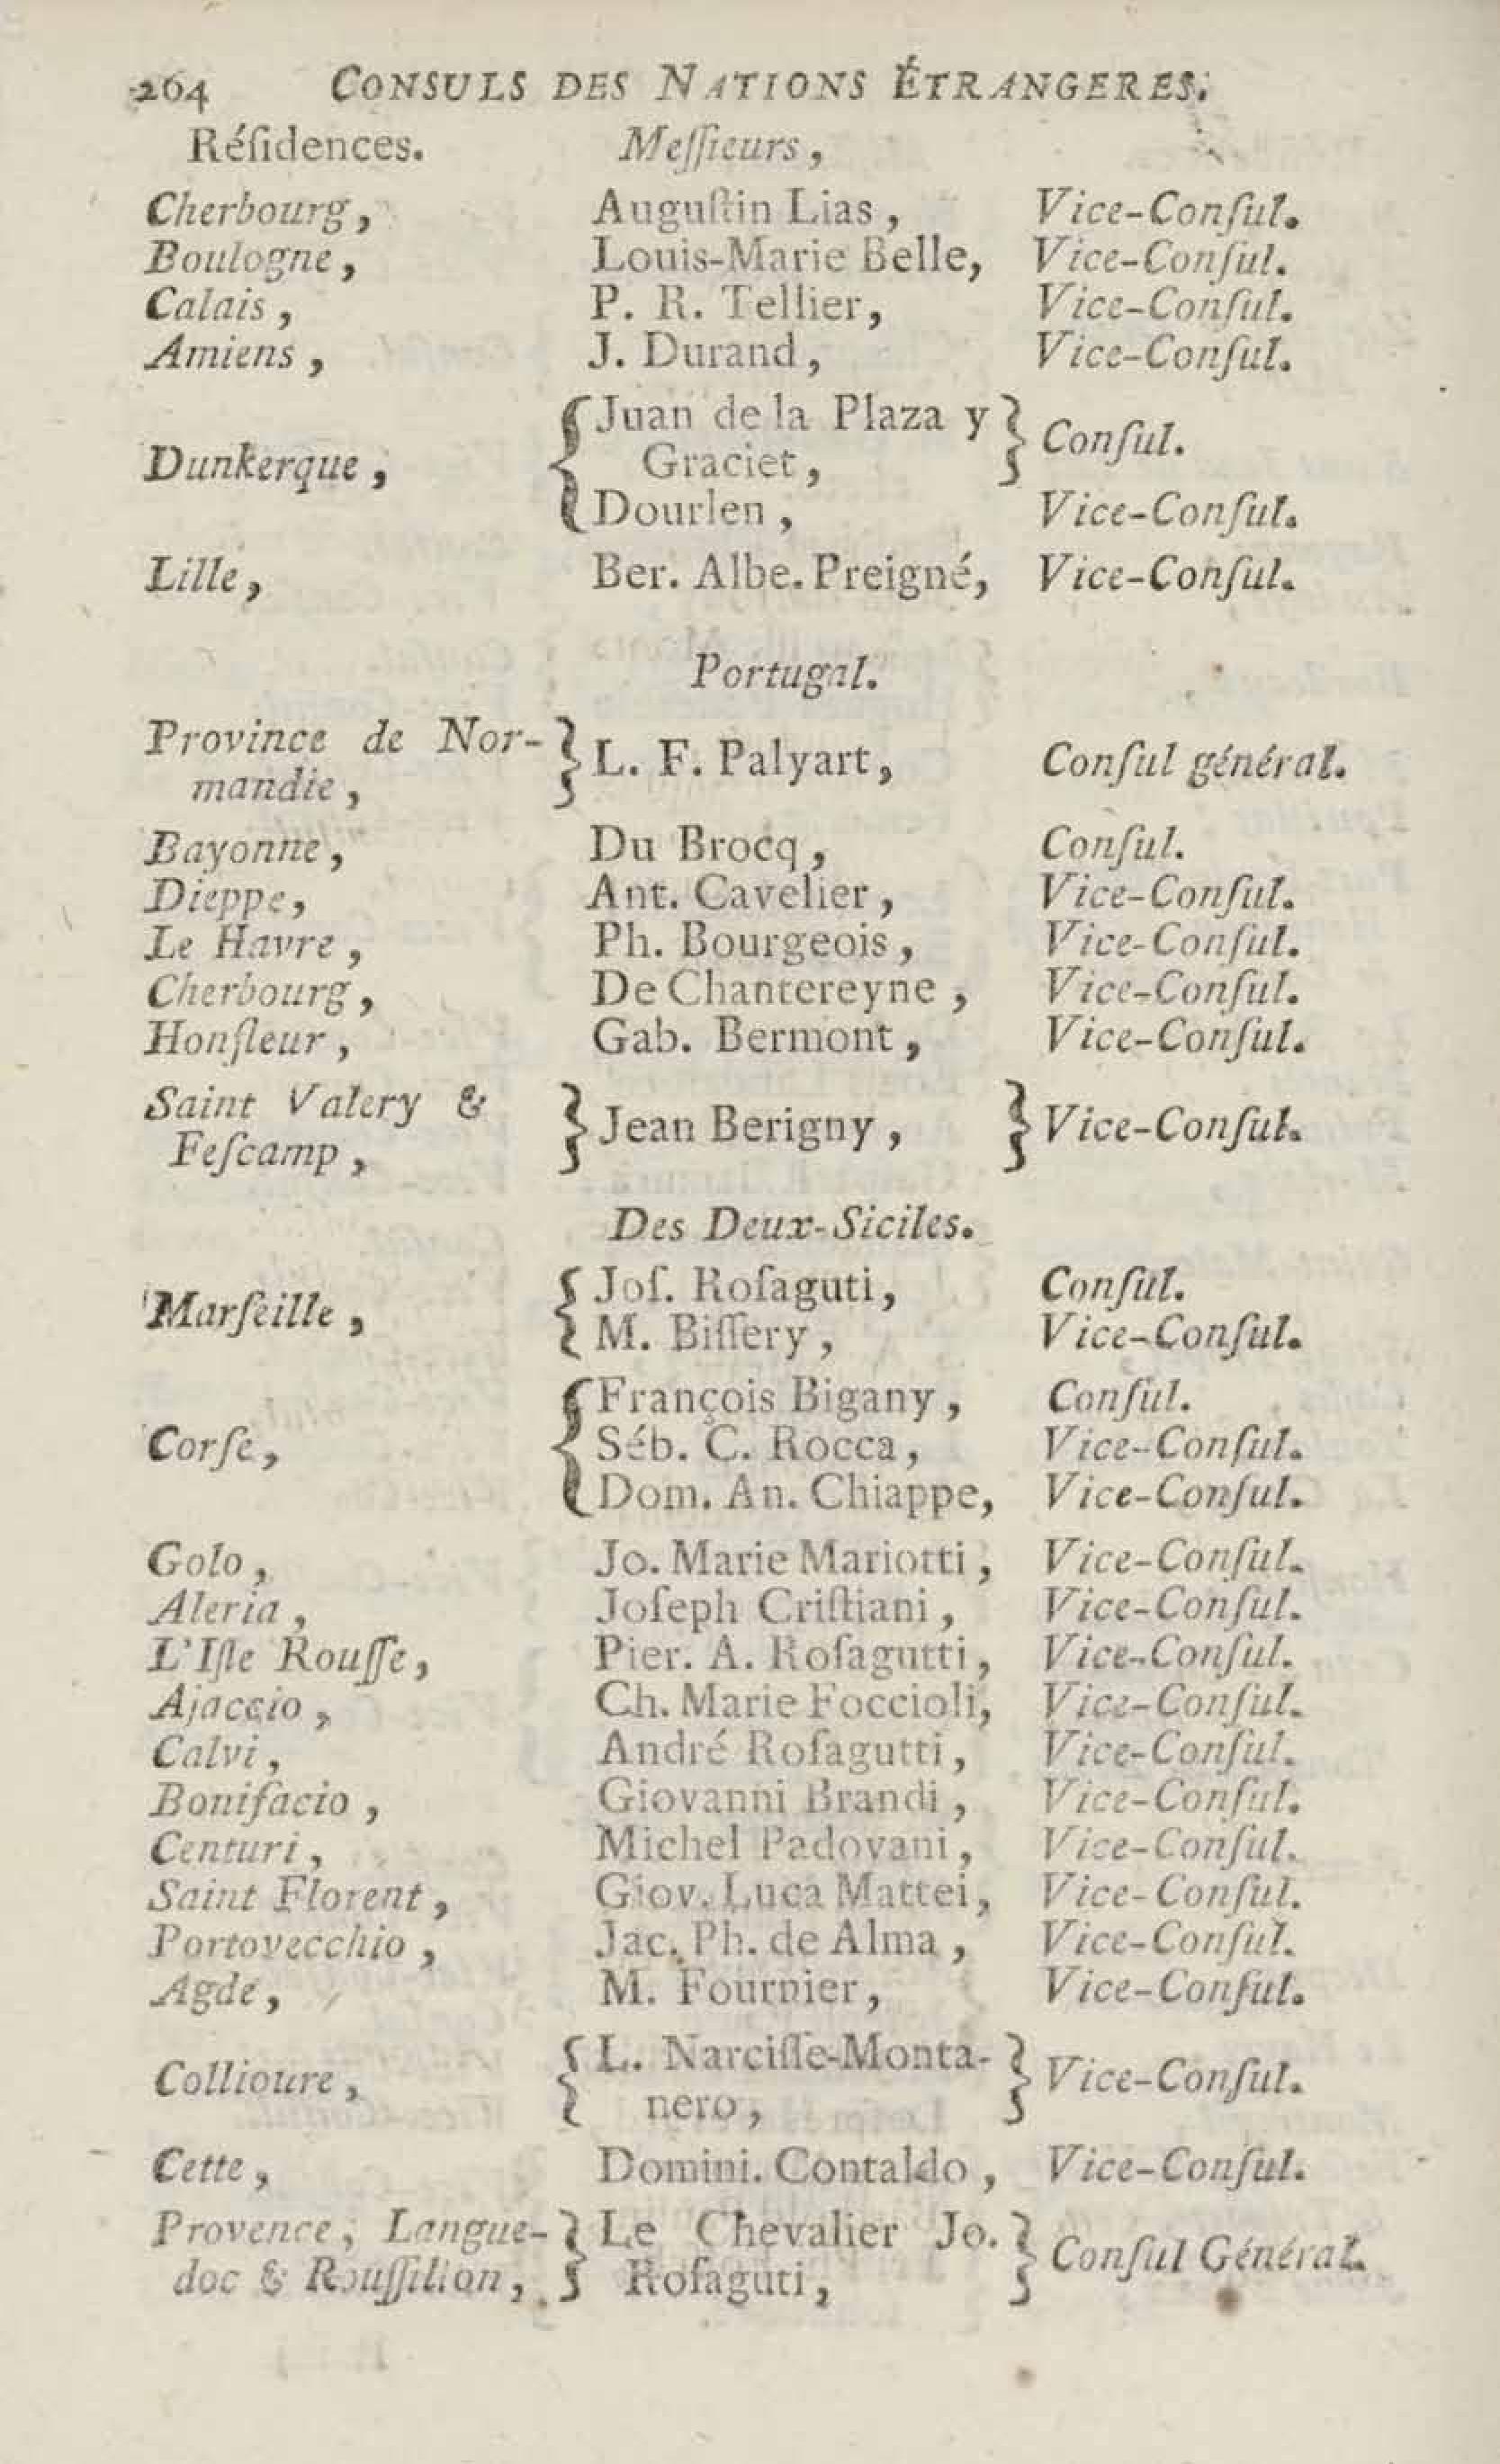 264 CONSULS DES NATIONS ÉTRANGERES.
Réſidences. Meſſieurs,
Cherbourg, Auguſtin Lias, Vice-Conſul.
Boulogne, Louis-Marie Belle, Vice-Conſul.
Calais, P. R. Tellier, Vice-Conſul.
Amiens, J. Durand, Vice-Conſul.
Dunkerque, { Juan de la Plaza y Graciet, } Conſul.
Dourlen, Vice-Conſul.
Lille, Ber. Albe. Preigné, Vice-Conſul.
Portugal.
Province de Nor-
mandie, } L. F. Palyart, Conſul général.
Bayonne, Du Brocq, Conſul.
Dieppe, Ant. Cavelier, Vice-Conſul.
Le Havre, Ph. Bourgeois, Vice-Conſul.
Cherbourg, De Chantereyne, Vice-Conſul.
Honfleur, Gab. Bermont, Vice-Conſul.
Saint Valery &
Feſcamp, } Jean Berigny, } Vice-Conſul.
Des Deux-Siciles.
Marſeille, { Joſ. Roſaguti, Conſul.
M. Biſſery, Vice-Conſul.
Corſe, { François Bigany, Conſul.
Séb. C. Rocca, Vice-Conſul.
Dom. An. Chiappe, Vice-Conſul.
Golo, Jo. Marie Mariotti, Vice-Conſul.
Aleria, Joſeph Criſtiani, Vice-Conſul.
L'Iſle Rouſſe, Pier. A. Roſagutti, Vice-Conſul.
Ajaccio, Ch. Marie Foccioli, Vice-Conſul.
Calvi, André Roſagutti, Vice-Conſul.
Bonifacio, Giovanni Brandi, Vice-Conſul.
Centuri, Michel Padovani, Vice-Conſul.
Saint Florent, Giov. Luca Mattei, Vice-Conſul.
Portovecchio, Jac. Ph. de Alma, Vice-Conſul.
Agde, M. Fournier, Vice-Conſul.
Collioure, { L. Narciſſe-Monta-
nero, } Vice-Conſul.
Cette, Domini. Contaldo, Vice-Conſul.
Provence, Langue- } Le Chevalier Jo. } Conſul Général.
doc & Rouſſillon, Roſaguti,